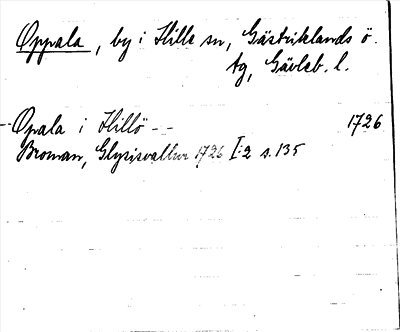 Oppala, by i Hille sn, Gästriklands ö.
tg, Gävleb. l.
--Opala i Hillö -- 1726
Broman, Glysisvallur 1726 I:2 s. 135